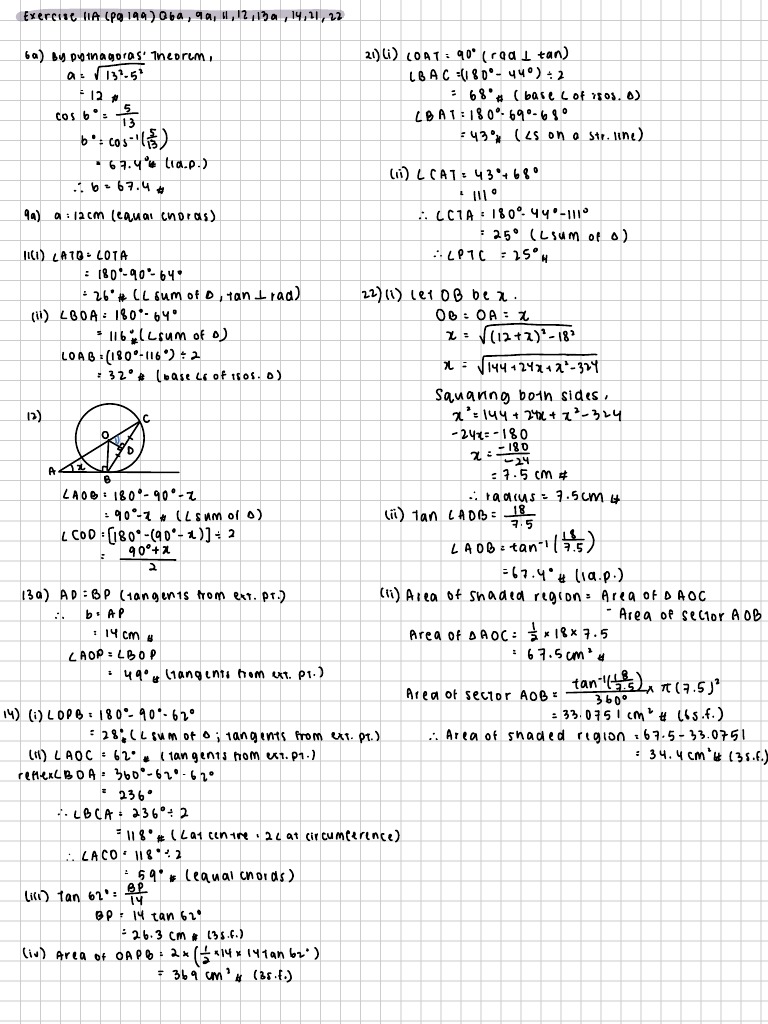 Exercise 11A (Pg 199) Q6a, 9a, 11, 12, 13a, 14, 21, 22
6a) By pythagoras' Theorem,
a = √13²-5²
= 12 #
cos b° = 5/13
b° = cos⁻¹(5/13)
= 67.4° # (1d.p.)
∴ b = 67.4 #
9a) a = 12cm (equal chords)
11(i) ∠ATQ = ∠OTA
= 180° - 90° - 64°
= 26° # (∠ sum of Δ, tan ⊥ rad)
(ii) ∠BOA = 180° - 64°
= 116° # (∠ sum of Δ)
∠OAB = (180° - 116°) ÷ 2
= 32° # (base ∠s of isos. Δ)
12)
C
O
D
A
x
B
∠AOB = 180° - 90° - x
= 90° - x # (∠ sum of Δ)
∠COD = [180° - (90° - x)] ÷ 2
= 90° + x / 2
13a) AP = BP (tangents from ext. pt.)
∴ b = AP
= 14 cm #
∠AOP = ∠BOP
= 49° # (tangents from ext. pt.)
14) (i) ∠OPB = 180° - 90° - 62°
= 28° # (∠ sum of Δ ; tangents from ext. pt.)
(ii) ∠AOC = 62° # (tangents from ext. pt.)
reflex∠BOA = 360° - 62° - 62°
= 236°
∴ ∠BCA = 236° ÷ 2
= 118° # (∠ at centre = 2∠ at circumference)
∴ ∠ACO = 118° ÷ 2
= 59° # (equal chords)
(iii) Tan 62° = BP/14
BP = 14 tan 62°
= 26.3 cm # (3s.f.)
(iv) Area of OAPB = 2 × (1/2 × 14 × 14 tan 62°)
= 369 cm² # (3s.f.)
21)(i) ∠OAT = 90° (rad ⊥ tan)
∠BAC = (180° - 44°) ÷ 2
= 68° # (base ∠ of isos. Δ)
∠BAT = 180° - 69° - 68°
= 43° # (∠s on a str. line)
(ii) ∠CAT = 43° + 68°
= 111°
∴ ∠CTA = 180° - 44° - 111°
= 25° (∠ sum of Δ)
∴ ∠PTC = 25° #
22)(i) Let OB be x.
OB = OA = x
x = √(12+x)² - 18²
x = √144 + 24x + x² - 324
Squaring both sides,
x² = 144 + 24x + x² - 324
-24x = -180
x = -180/-24
= 7.5 cm #
∴ radius = 7.5cm #
(ii) Tan ∠AOB = 18/7.5
∠AOB = tan⁻¹(18/7.5)
= 67.4° # (1d.p.)
(ii) Area of shaded region = Area of ΔAOC
- Area of sector AOB
Area of ΔAOC = 1/2 × 18 × 7.5
= 67.5cm² #
Area of sector AOB = tan⁻¹(18/7.5)/360° × π(7.5)²
= 33.0751 cm² # (6s.f.)
∴ Area of shaded region = 67.5 - 33.0751
= 34.4 cm² # (3s.f.)